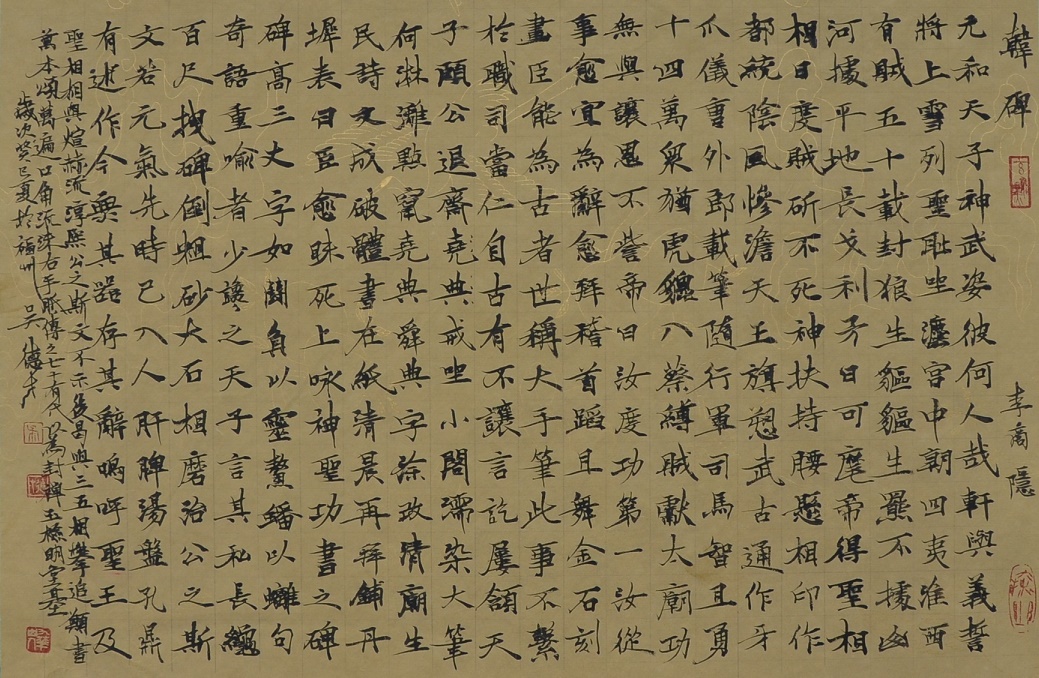 韓碑 李商隱
元和天子神武姿彼何人哉軒與羲誓
將上雪列聖恥坐灋宮中朝四夷淮西
有賊五十載封狼生貙貙生羆不據山
河據平地長戈利矛日可麾帝得聖相
相曰度賊斫不死神扶持腰懸相印作
都統陰風慘澹天王旗愬武古通作牙
爪儀曹外郎載筆隨行軍司馬智且勇
十四萬眾猶虎貔入蔡縛賊獻太廟功
無與讓恩不訾帝曰汝度功第一汝從
事愈宜為辭愈拜稽首蹈且舞金石刻
畫臣能為古者世稱大手筆此事不繫
於職司當仁自古有不讓言訖屢頷天
子頤公退齋堯典戒坐小閤濡染大筆
何淋灕點竄堯典舜典字塗改清廟生
民詩文成破體書在紙清晨再拜鋪丹
墀表曰臣愈昧死上咏神聖功書之碑
碑高三丈字如鬪負以靈鰲蟠以螭句
奇語重喻者少讒之天子言其私長繩
百尺拽碑倒粗砂大石相磨治公之斯
文若元氣先時已入人肝脾湯盤孔鼎
有述作今無其器存其辭嗚呼聖王及
聖相相與煊赫流淳熙公之斯文不示後曷與三五相攀追願書
萬本誦萬遍口角流沫右手胝傳之七十有代以為封禪玉檢明堂基
歲次癸巳夏於福州 吳德